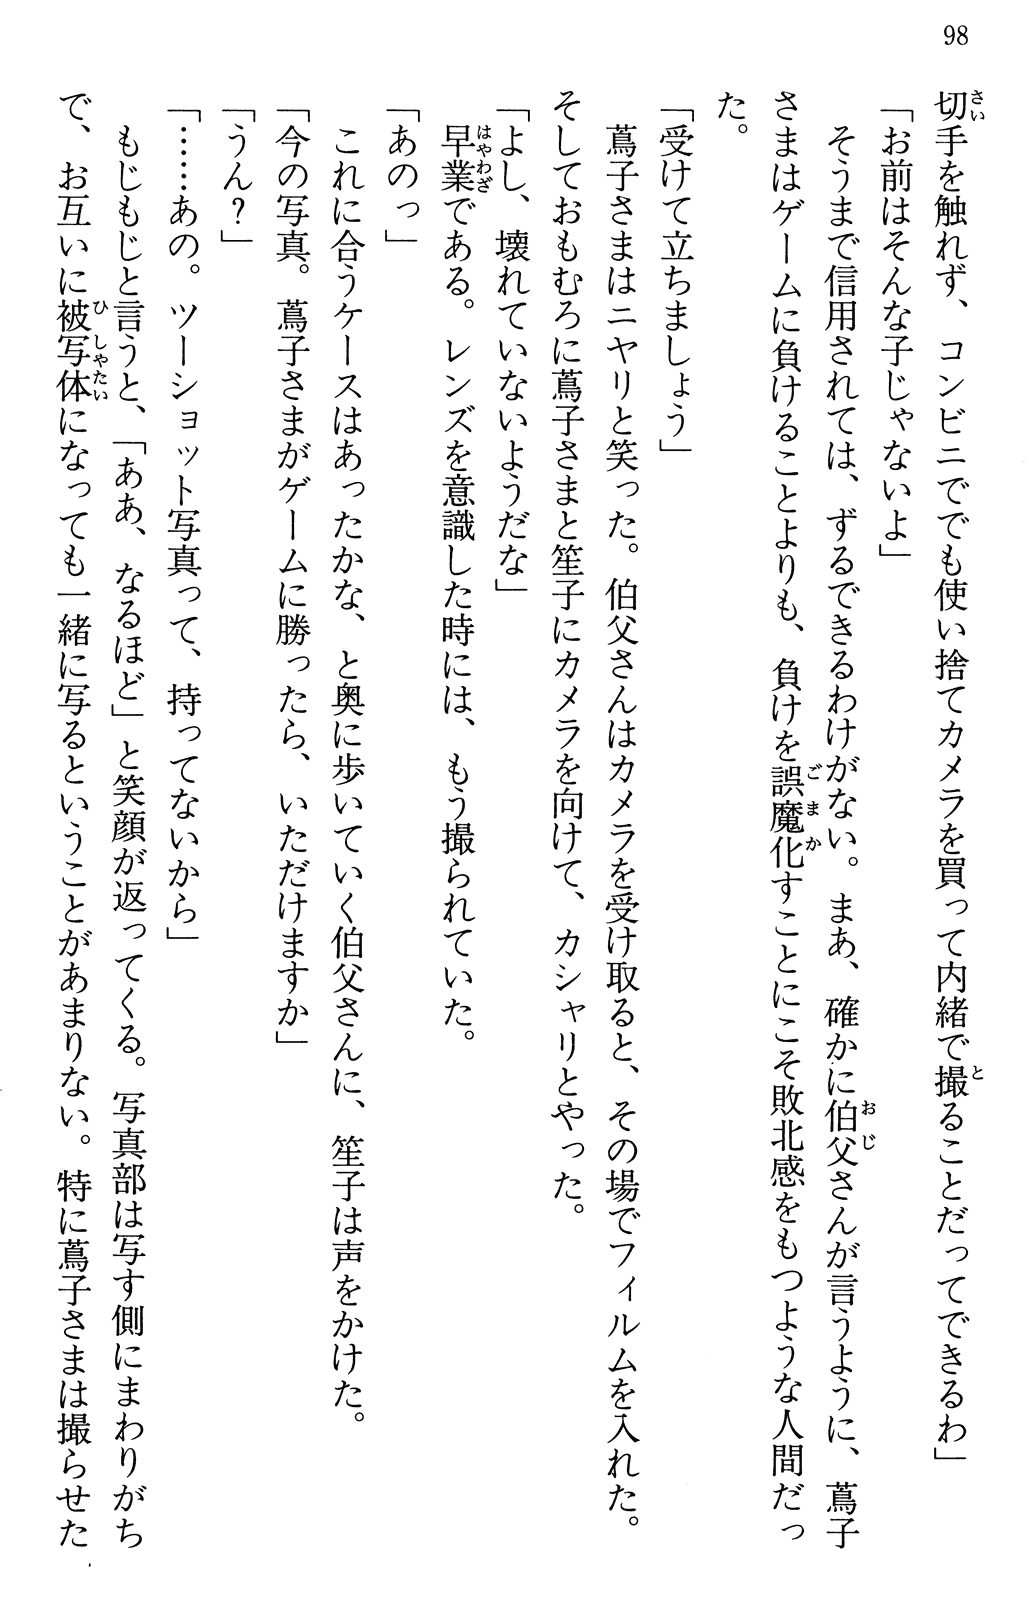 98
切手を触れず、コンビニででも使い捨てカメラを買って内緒で撮ることだってできるわ」
「お前はそんな子じゃないよ」
そうまで信用されては、ずるできるわけがない。まあ、確かに伯父さんが言うように、蔦子
さまはゲームに負けることよりも、負けを誤魔化すことにこそ敗北感をもつような人間だっ
た。
「受けて立ちましょう」
蔦子さまはニヤリと笑った。伯父さんはカメラを受け取ると、その場でフィルムを入れた。
そしておもむろに蔦子さまと笙子にカメラを向けて、カシャリとやった。
「よし、壊れていないようだな」
早業である。レンズを意識した時には、もう撮られていた。
「あのっ」
これに合うケースはあったかな、と奥に歩いていく伯父さんに、笙子は声をかけた。
「今の写真。蔦子さまがゲームに勝ったら、いただけますか」
「うん？」
「……あの。ツーショット写真って、持ってないから」
もじもじと言うと、「ああ、なるほど」と笑顔が返ってくる。写真部は写す側にまわりがち
で、お互いに被写体になっても一緒に写るということがあまりない。特に蔦子さまは撮らせた